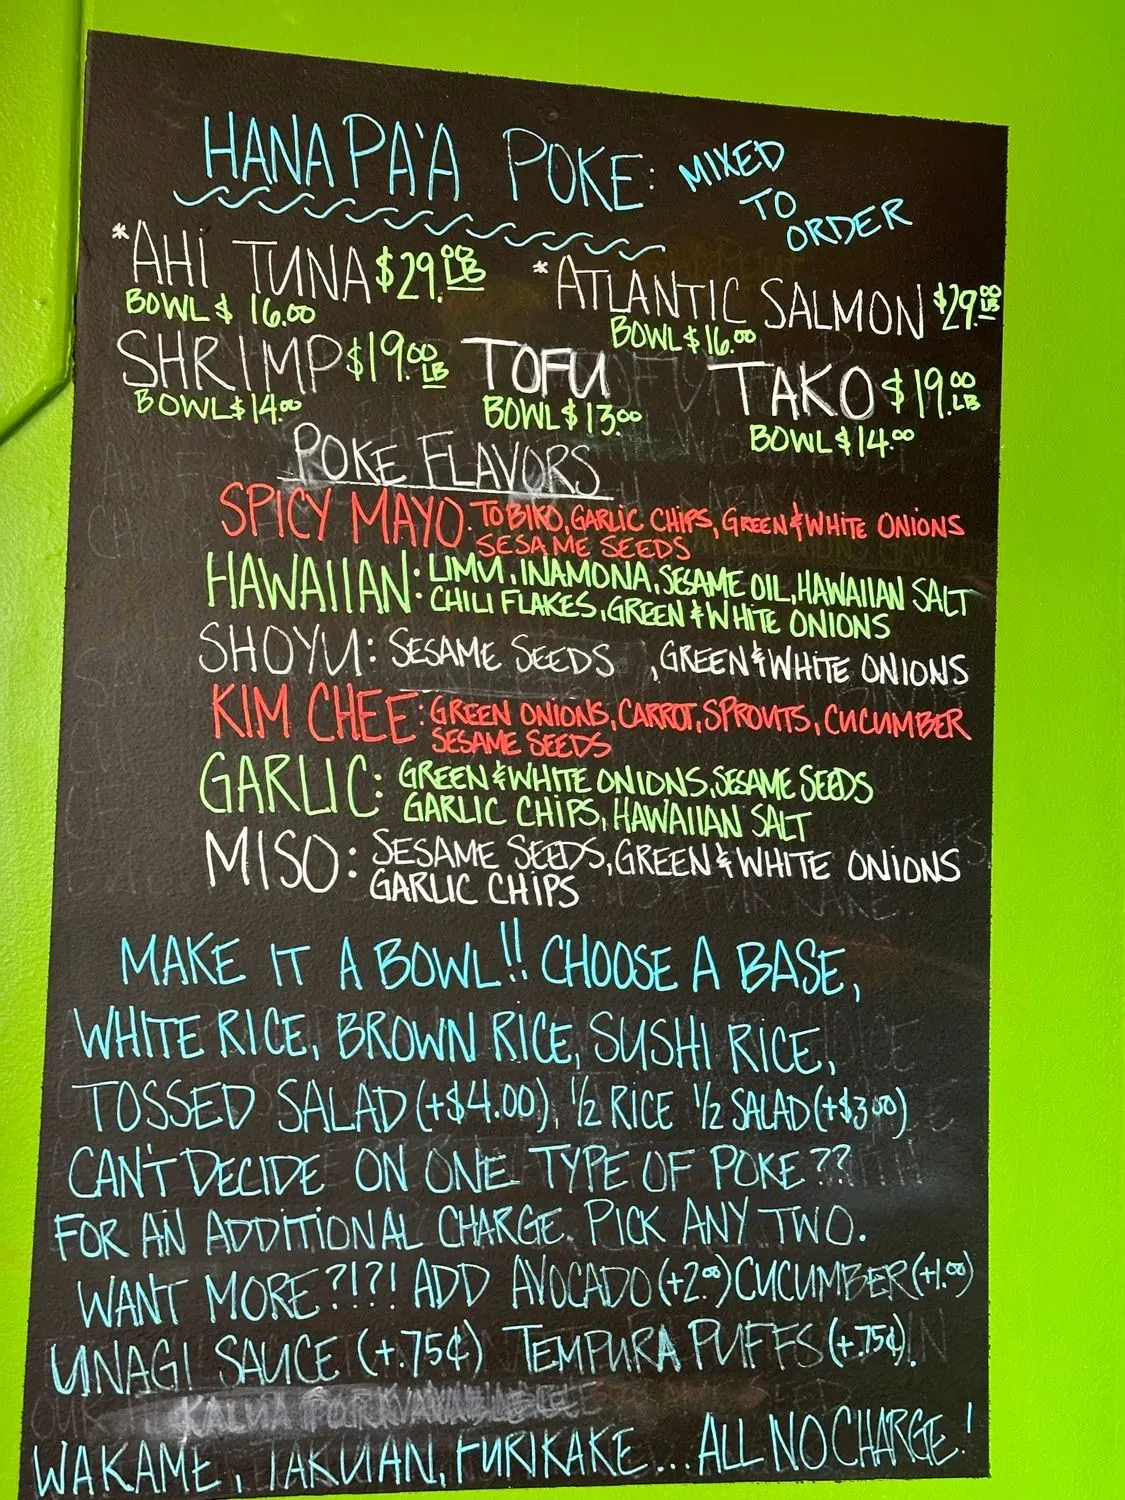 HANA PA'A POKE: MIXED TO ORDER
*AHI TUNA $29.00 LB *ATLANTIC SALMON $29.00 LB
BOWL $ 16.00 BOWL $16.00
SHRIMP $19.00 LB TOFU TAKO $19.00 LB
BOWL $14.00 BOWL $13.00 BOWL $14.00
POKE FLAVORS
SPICY MAYO: TOBIKO, GARLIC CHIPS, GREEN & WHITE ONIONS
SESAME SEEDS
HAWAIIAN: LIMU, INAMONA, SESAME OIL, HAWAIIAN SALT
CHILI FLAKES, GREEN & WHITE ONIONS
SHOYU: SESAME SEEDS , GREEN & WHITE ONIONS
KIM CHEE: GREEN ONIONS, CARROT, SPROUTS, CUCUMBER
SESAME SEEDS
GARLIC: GREEN & WHITE ONIONS, SESAME SEEDS
GARLIC CHIPS, HAWAIIAN SALT
MISO: SESAME SEEDS, GREEN & WHITE ONIONS
GARLIC CHIPS
MAKE IT A BOWL!! CHOOSE A BASE,
WHITE RICE, BROWN RICE, SUSHI RICE,
TOSSED SALAD (+$4.00), 1/2 RICE 1/2 SALAD (+$3.00)
CAN'T DECIDE ON ONE TYPE OF POKE??
FOR AN ADDITIONAL CHARGE. PICK ANY TWO.
WANT MORE?!?! ADD AVOCADO (+2.00) CUCUMBER (+1.00)
UNAGI SAUCE (+.75¢) TEMPURA PUFFS (+.75¢).
KALUA PORK
WAKAME, TAKUAN, FURIKAKE... ALL NO CHARGE!